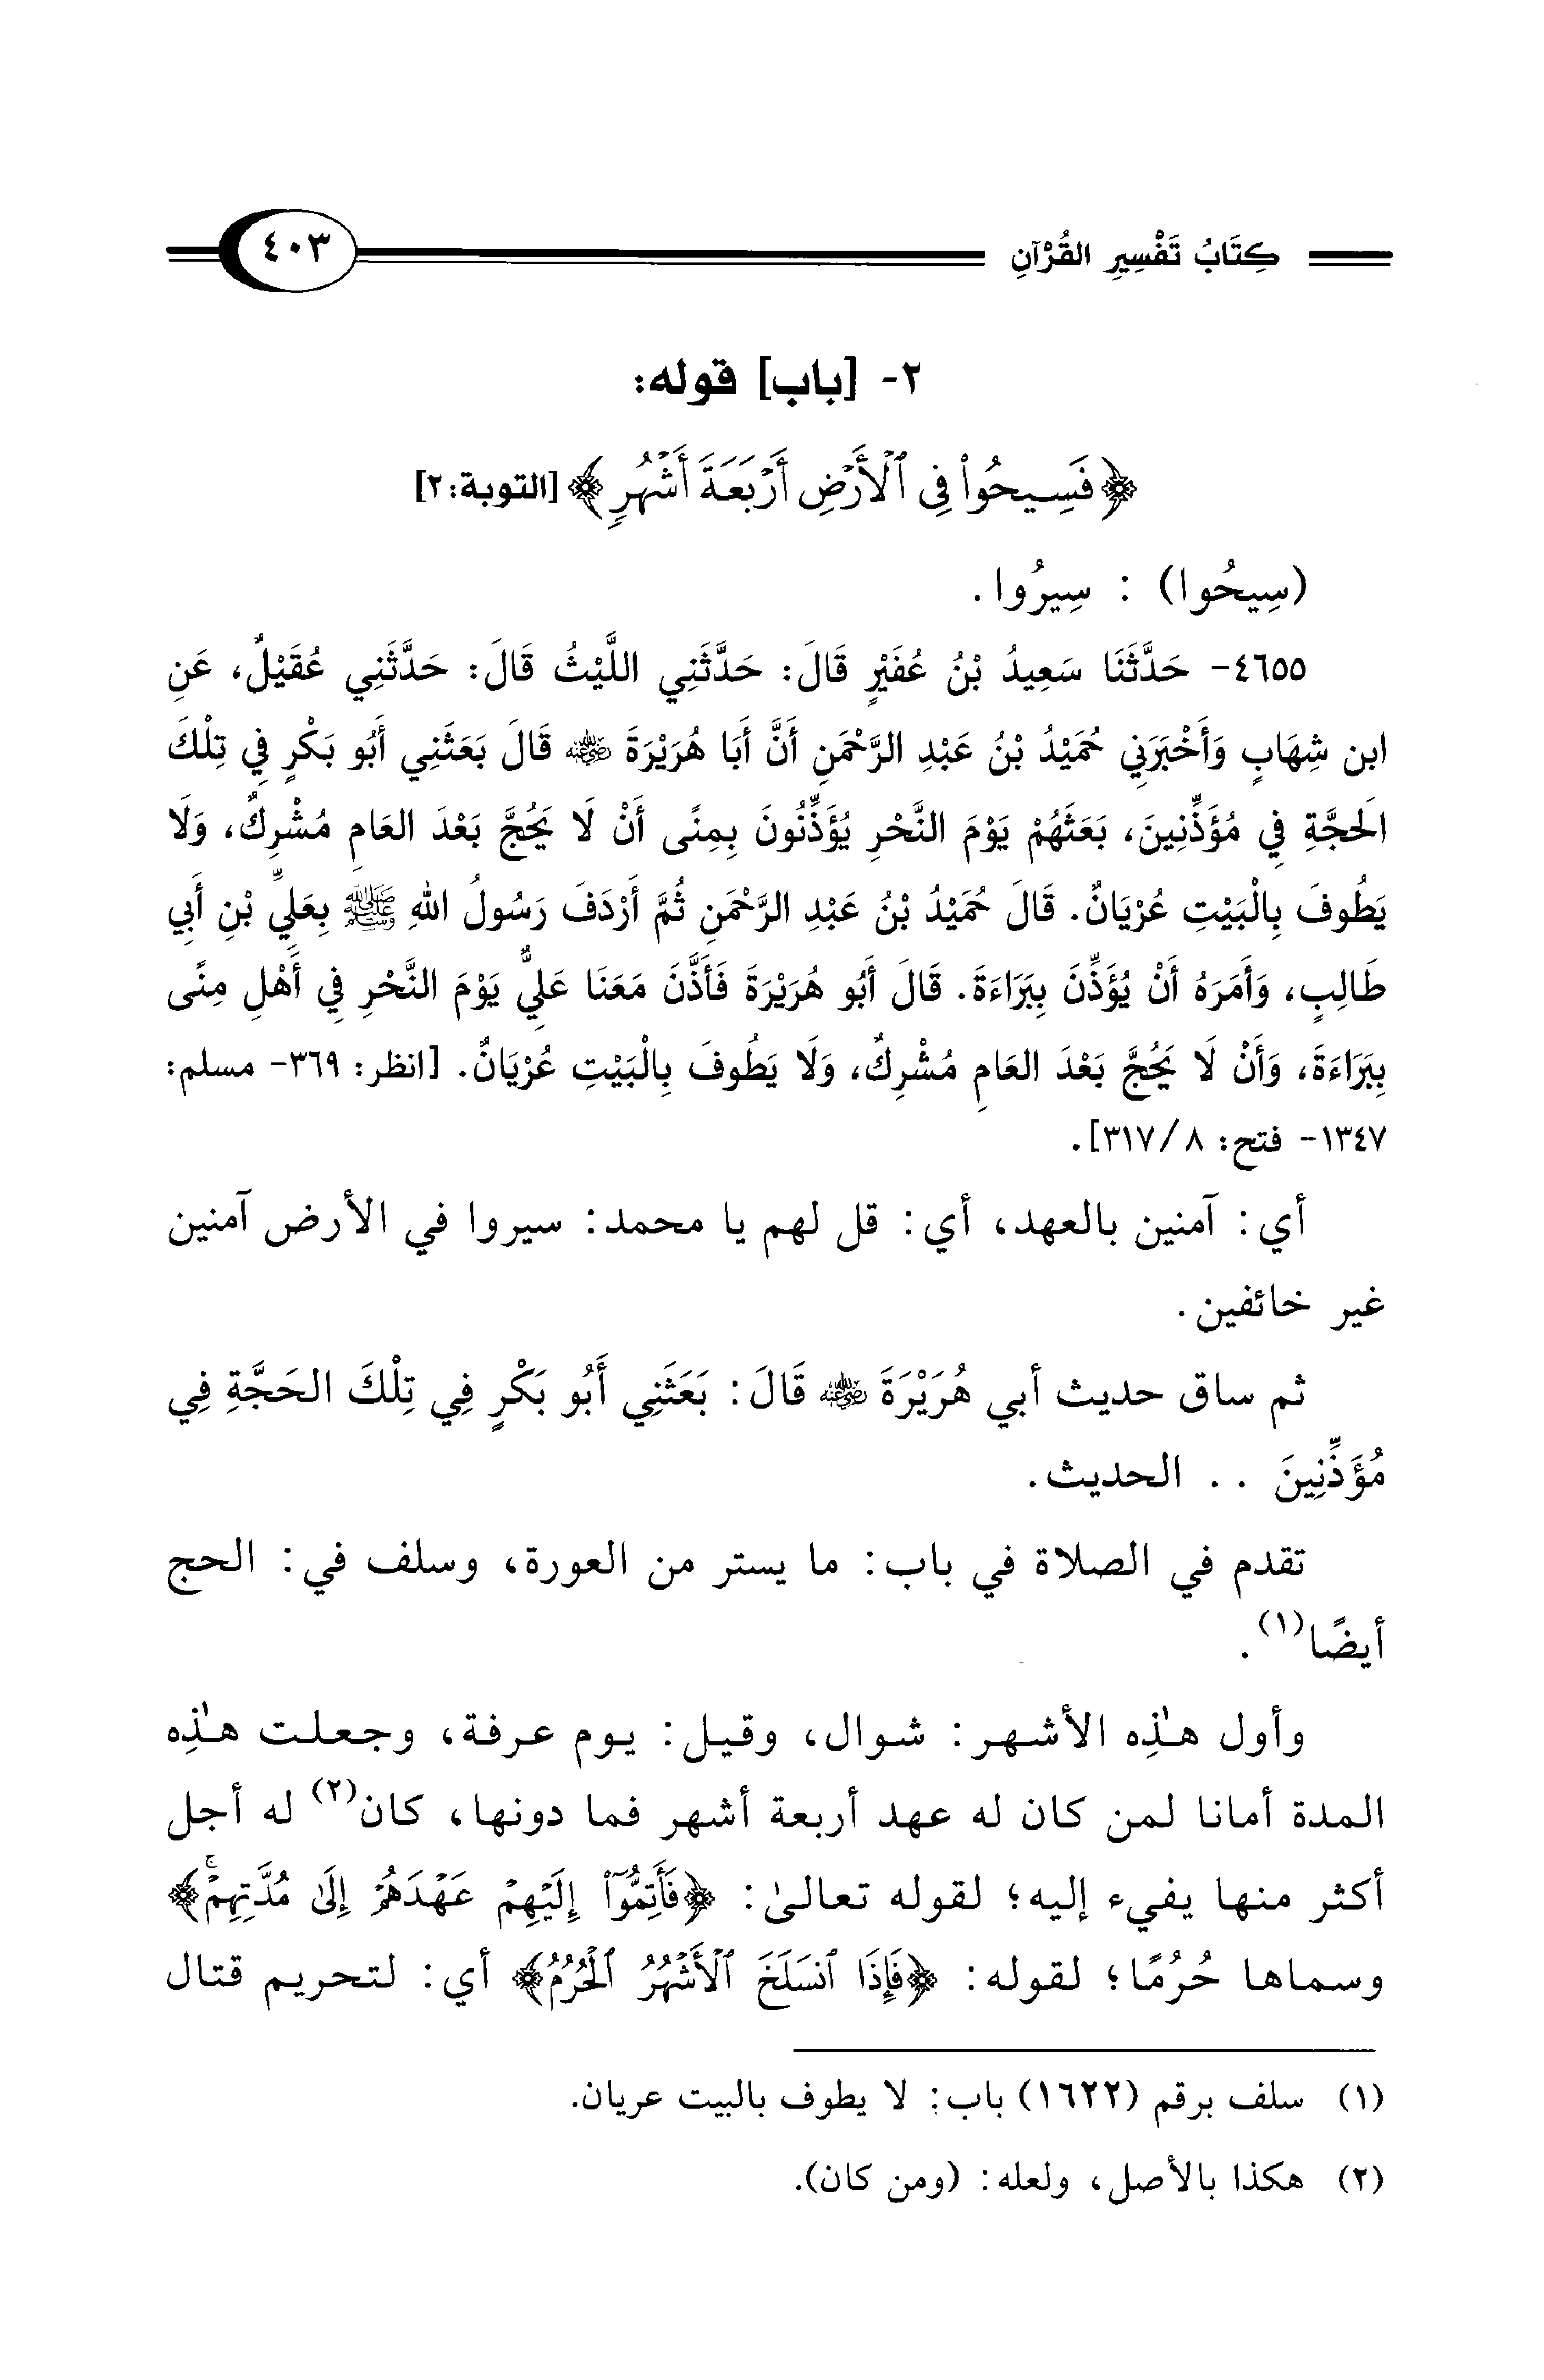 كِتَابُ تَفْسِيرِ القُرْآنِ ٤٠٣
٢- [باب] قوله:
﴿فَسِيحُوا۟ فِى ٱلْأَرْضِ أَرْبَعَةَ أَشْهُرٍ﴾ [التوبة:٢]
(سِيحُوا) : سِيرُوا.
٤٦٥٥- حَدَّثَنَا سَعِيدُ بْنُ عُفَيْرٍ قَالَ: حَدَّثَنِي اللَّيْثُ قَالَ: حَدَّثَنِي عُقَيْلٌ، عَنِ
ابن شِهَابٍ وَأَخْبَرَنِي حُمَيْدُ بْنُ عَبْدِ الرَّحْمَنِ أَنَّ أَبَا هُرَيْرَةَ رضي الله عنه قَالَ بَعَثَنِي أَبُو بَكْرٍ فِي تِلْكَ
الَحجَّةِ فِي مُؤَذِّنِينَ، بَعَثَهُمْ يَوْمَ النَّحْرِ يُؤَذِّنُونَ بِمِنًى أَنْ لَا يَحُجَّ بَعْدَ العَامِ مُشْرِكٌ، وَلَا
يَطُوفَ بِالْبَيْتِ عُرْيَانٌ. قَالَ حُمَيْدُ بْنُ عَبْدِ الرَّحْمَنِ ثُمَّ أَرْدَفَ رَسُولُ اللهِ ﷺ بِعَلِيِّ بْنِ أَبِي
طَالِبٍ، وَأَمَرَهُ أَنْ يُؤَذِّنَ بِبَرَاءَةَ. قَالَ أَبُو هُرَيْرَةَ فَأَذَّنَ مَعَنَا عَلِيٌّ يَوْمَ النَّحْرِ فِي أَهْلِ مِنًى
بِبَرَاءَةَ، وَأَنْ لَا يَحُجَّ بَعْدَ العَامِ مُشْرِكٌ، وَلَا يَطُوفَ بِالْبَيْتِ عُرْيَانٌ. [انظر: ٣٦٩- مسلم:
١٣٤٧- فتح: ٣١٧/٨].
أي: آمنين بالعهد، أي: قل لهم يا محمد: سيروا في الأرض آمنين
غير خائفين.
ثم ساق حديث أبي هُرَيْرَةَ رضي الله عنه قَالَ: بَعَثَنِي أَبُو بَكْرٍ فِي تِلْكَ الحَجَّةِ فِي
مُؤَذِّنِينَ .. الحديث.
تقدم في الصلاة في باب: ما يستر من العورة، وسلف في: الحج
أيضًا(١).
وأول هذِه الأشهر: شوال، وقيل: يوم عرفة، وجعلت هذِه
المدة أمانا لمن كان له عهد أربعة أشهر فما دونها، كان(٢) له أجل
أكثر منها يفيء إليه؛ لقوله تعالىٰ: ﴿فَأَتِمُّوٓا۟ إِلَيْهِمْ عَهْدَهُمْ إِلَىٰ مُدَّتِهِمْۚ﴾
وسماها حُرُمًا؛ لقوله: ﴿فَإِذَا ٱنسَلَخَ ٱلْأَشْهُرُ ٱلْحُرُمُ﴾ أي: لتحريم قتال
(١) سلف برقم (١٦٢٢) باب: لا يطوف بالبيت عريان.
(٢) هكذا بالأصل، ولعله: (ومن كان).